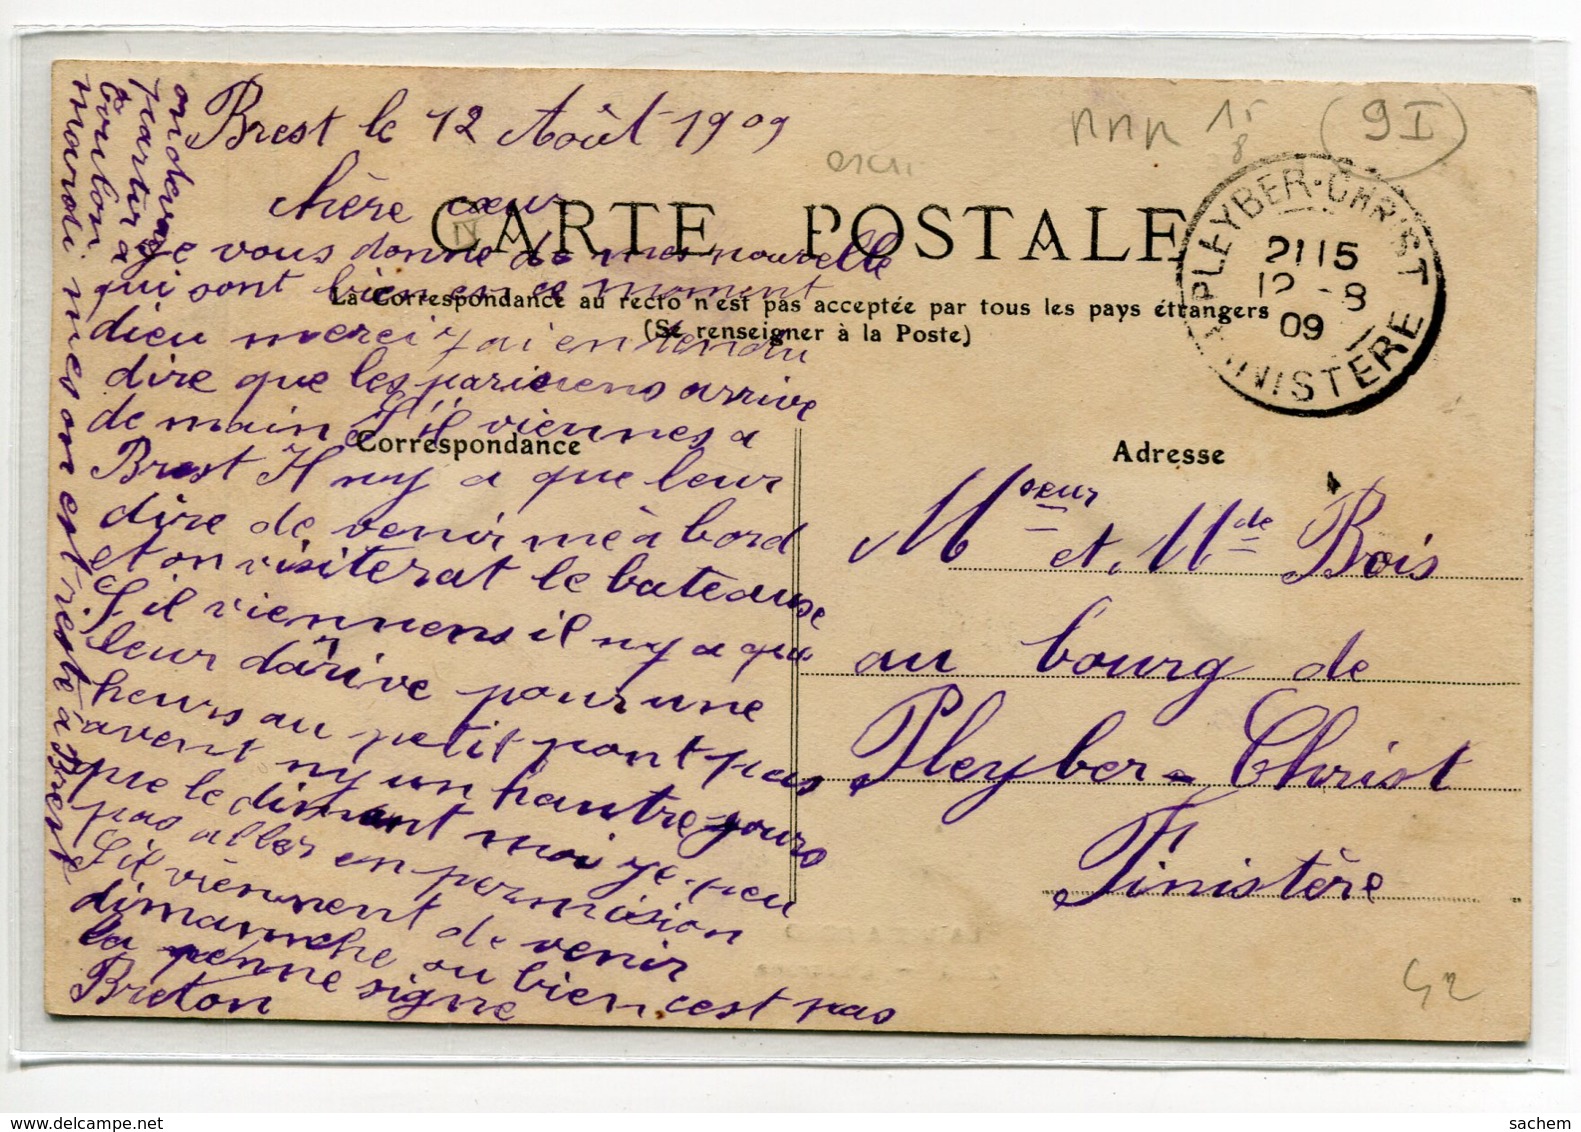 Brest le 12 Août 1909
chère cœur
CARTE POSTALE
je vous donne de mes nouvelle
qui sont bien en ce moment
La Correspondance au recto n'est pas acceptée par tous les pays étrangers
(Se renseigner à la Poste)
dieu merci j'ai entendu
dire que les parisiens arrive
de main S'il viennes a
Correspondance
Brest Il n'y a que leur
dire de venir me à bord
et on visiterat le bateause
S'il viennens il n'y a que
leur dârive pour une
heurs au petit pont pas
avent n'y un hautre jours
que le diment moi je peu
pas aller en permission
S'il viennent de venir
dimanche ou bien c'est pas
la penne signe
Breton
on devai
partir a
Toulon
mardi mes on est resté à Brest
Adresse
Mseur et Mde Bois
au bourg de
Pleyber-Christ
Finistère
PLEYBER-CHRIST
21 15
12 -8
09
FINISTERE
15
8
9I
42
sachem